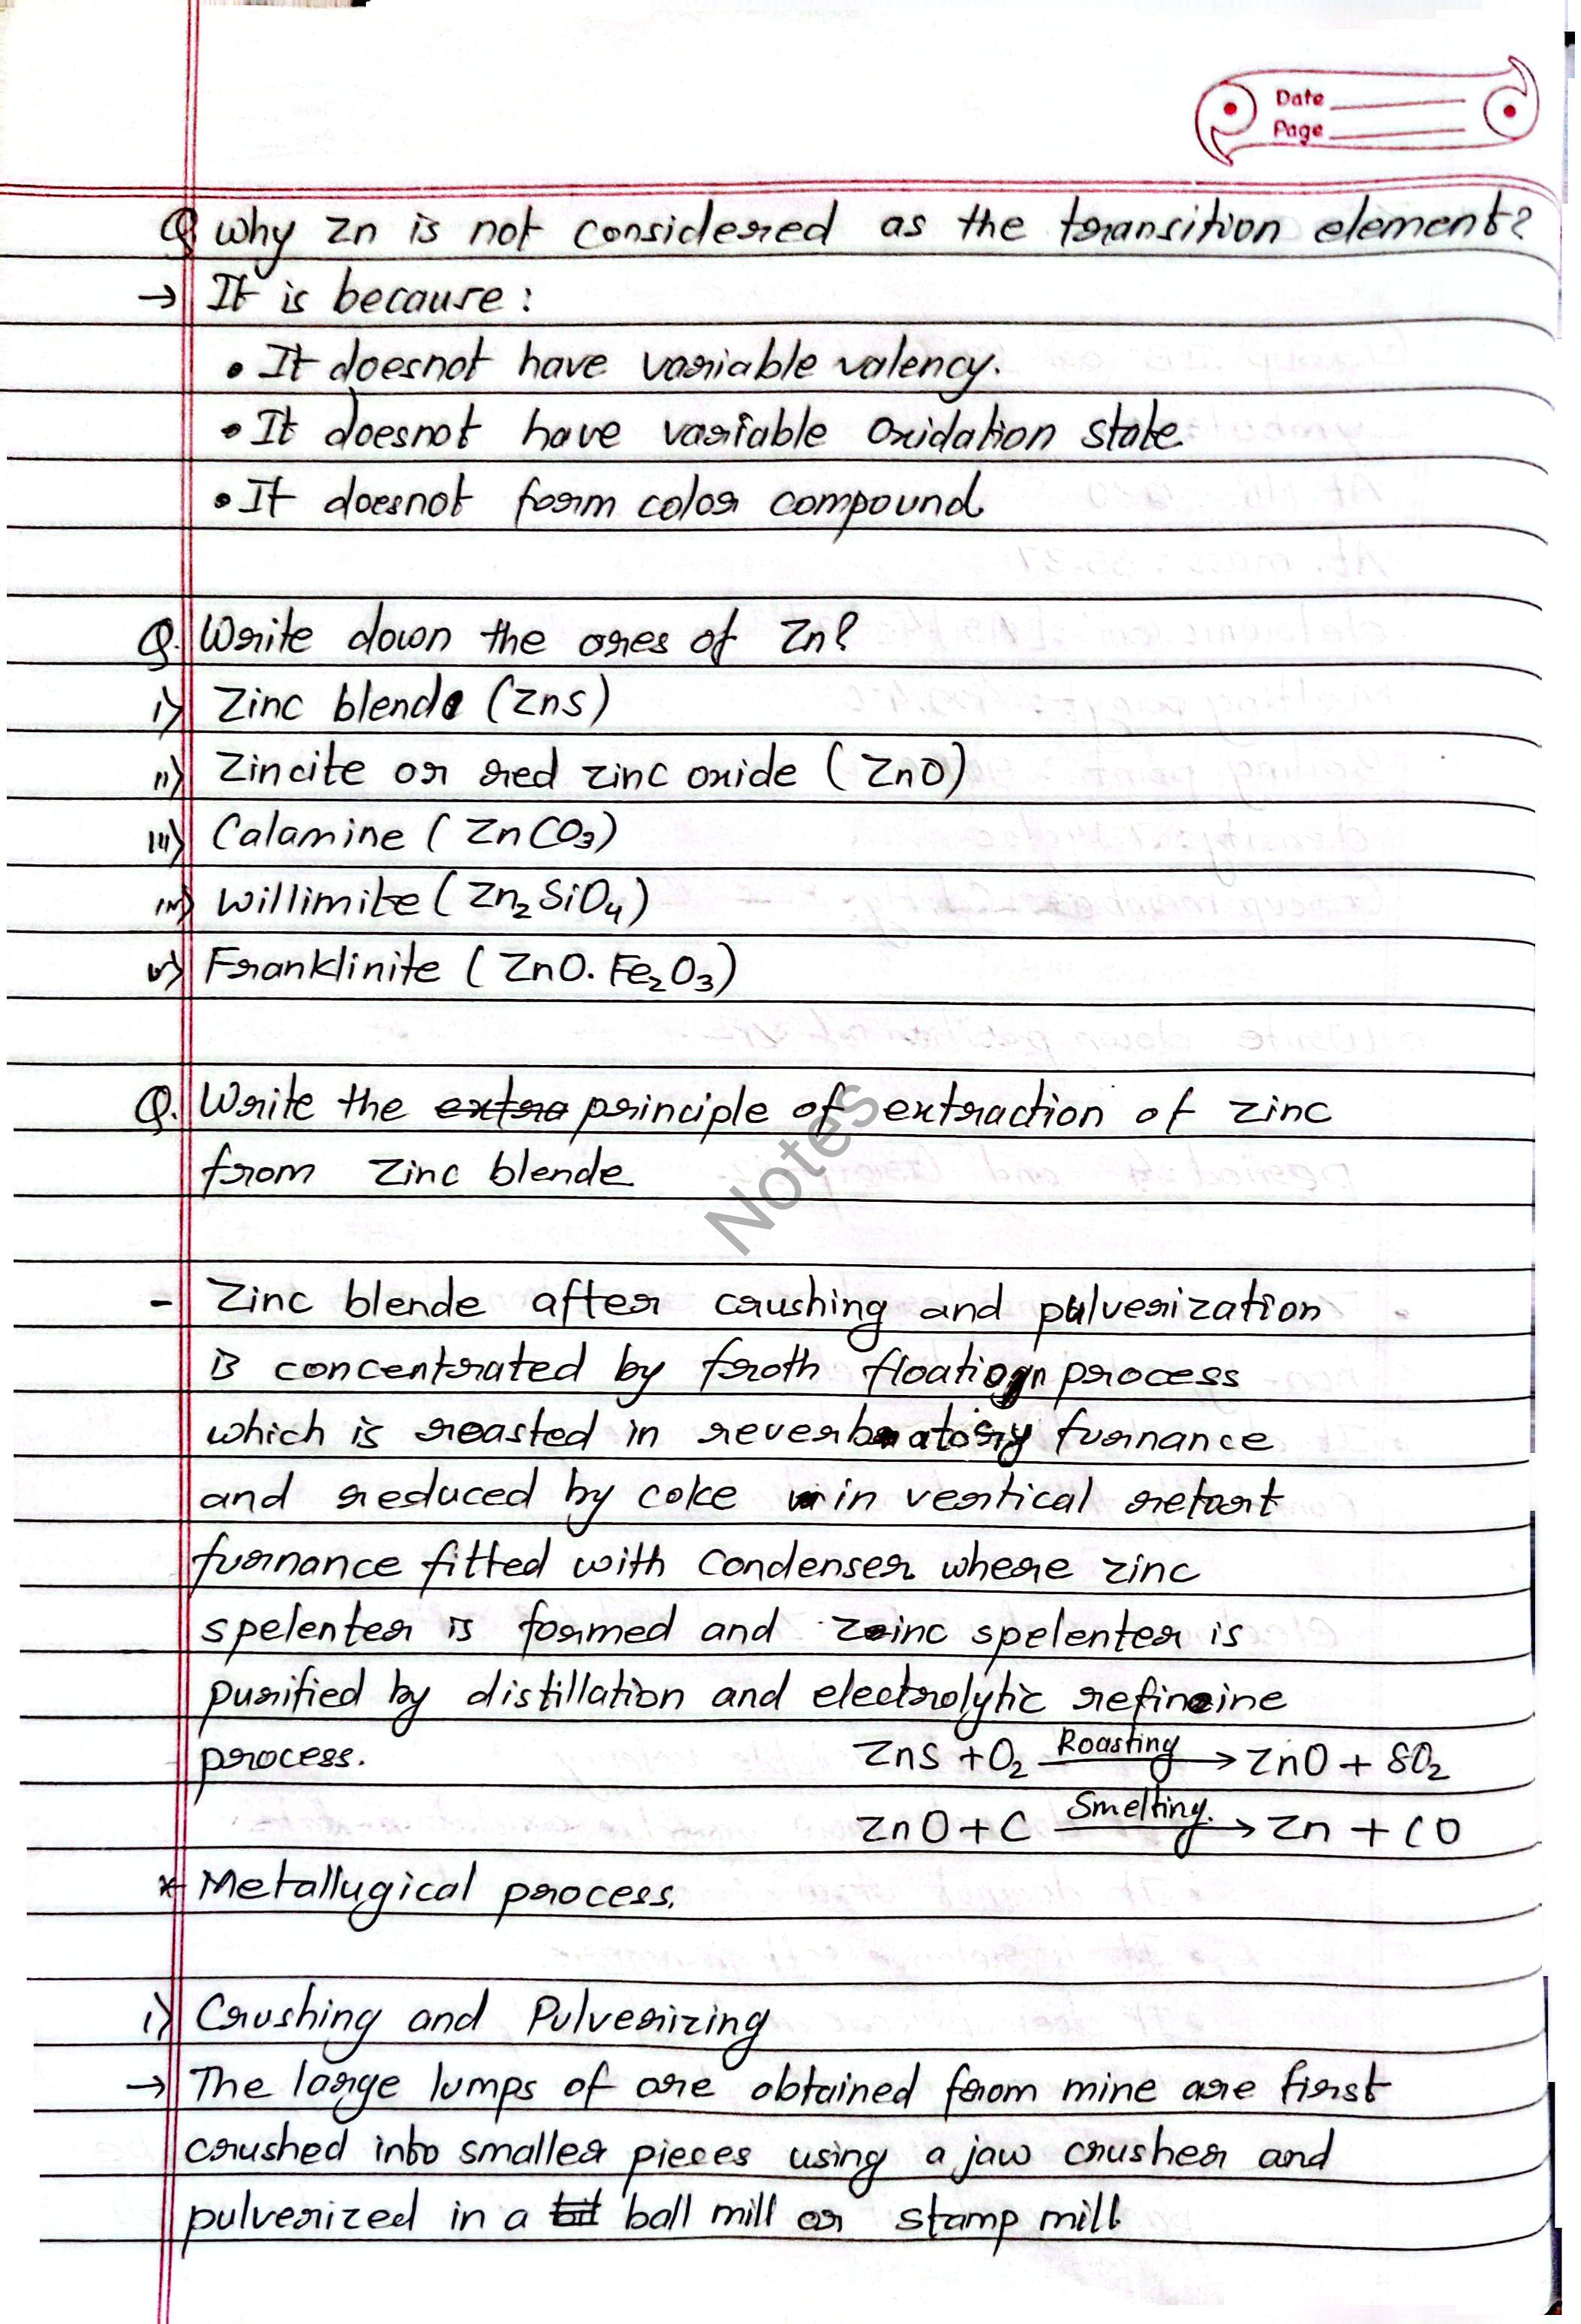 Date
Page
Q why Zn is not considered as the transition element?
→ It is because:
• It doesnot have variable valency.
• It doesnot have variable oxidation state
• It doesnot form color compound
Q. Write down the ores of Zn?
i) Zinc blende (Zns)
ii) Zincite or red zinc oxide (ZnO)
iii) Calamine (ZnCO₃)
iv) Willimite (Zn₂SiO₄)
v) Franklinite (ZnO.Fe₂O₃)
Q. Write the extra principle of extraction of zinc
from zinc blende
Notes
- Zinc blende after crushing and pulverization
is concentrated by froth floation process
which is roasted in reverbatory furnance
and reduced by coke in vertical retort
furnance fitted with condenser where zinc
spelenter is formed and zinc spelenter is
purified by distillation and electrolytic refineine
process.
ZnS + O₂ Roasting → ZnO + SO₂
ZnO + C Smelting. → Zn + CO
* Metallugical process.
i) Crushing and Pulverizing
→ The large lumps of ore obtained from mine are first
crushed into smaller pieces using a jaw crusher and
pulverized in a bit ball mill or stamp mill